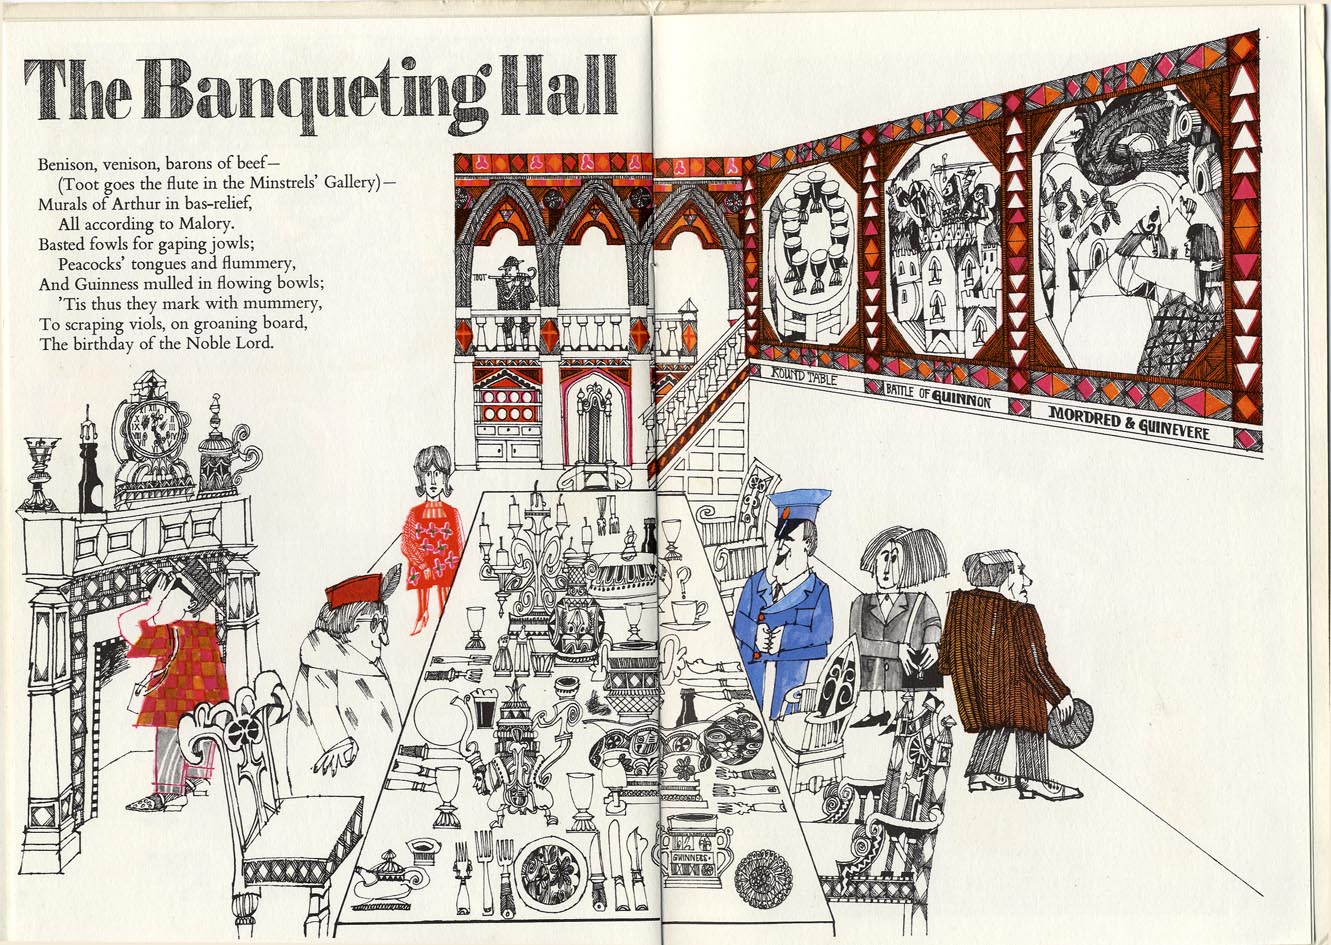 The Banqueting Hall
Benison, venison, barons of beef—
(Toot goes the flute in the Minstrels' Gallery)—
Murals of Arthur in bas-relief,
All according to Malory.
Basted fowls for gaping jowls;
Peacocks' tongues and flummery,
And Guinness mulled in flowing bowls;
'Tis thus they mark with mummery,
To scraping viols, on groaning board,
The birthday of the Noble Lord.
TOOT
ROUND TABLE
BATTLE OF GUINNON
MORDRED & GUINEVERE
GUINNERS